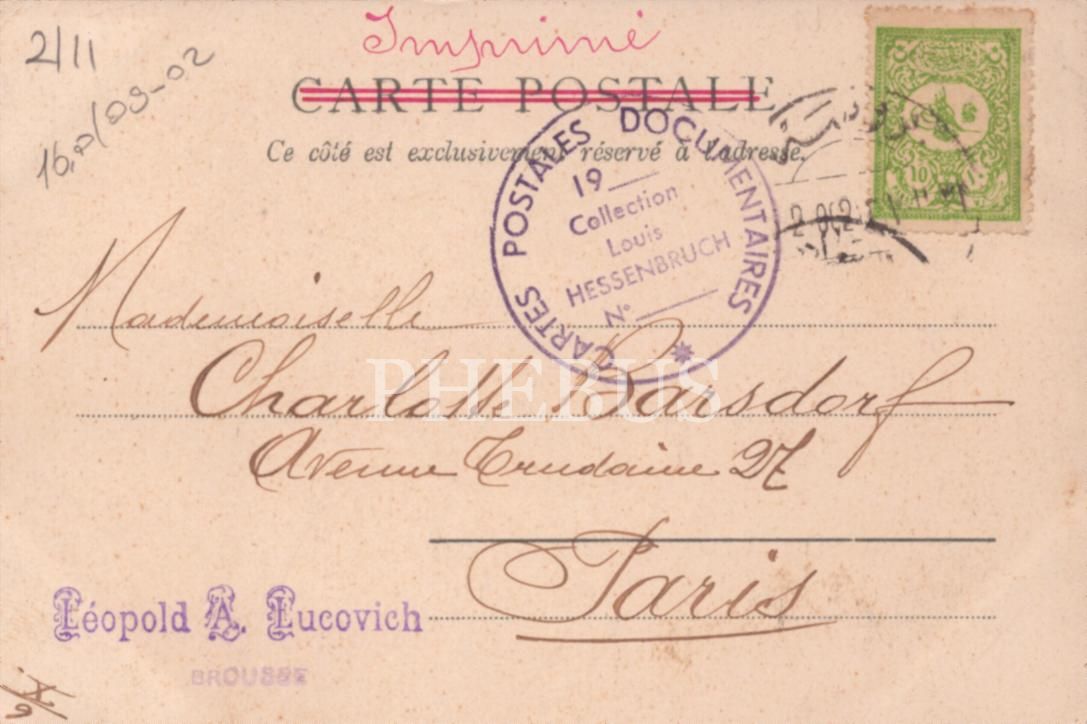 2/11
Imprimé
CARTE POSTALE
Ce côté est exclusivement réservé à l'adresse.
10
CARTES POSTALES DOCUMENTAIRES
19
Collection
Louis
HESSENBRUCH
N°
Mademoiselle
Charlotte Barsdorf
Avenue Trudaine 27
Paris
PHEBUS
Léopold A. Lucovich
BROUSSE